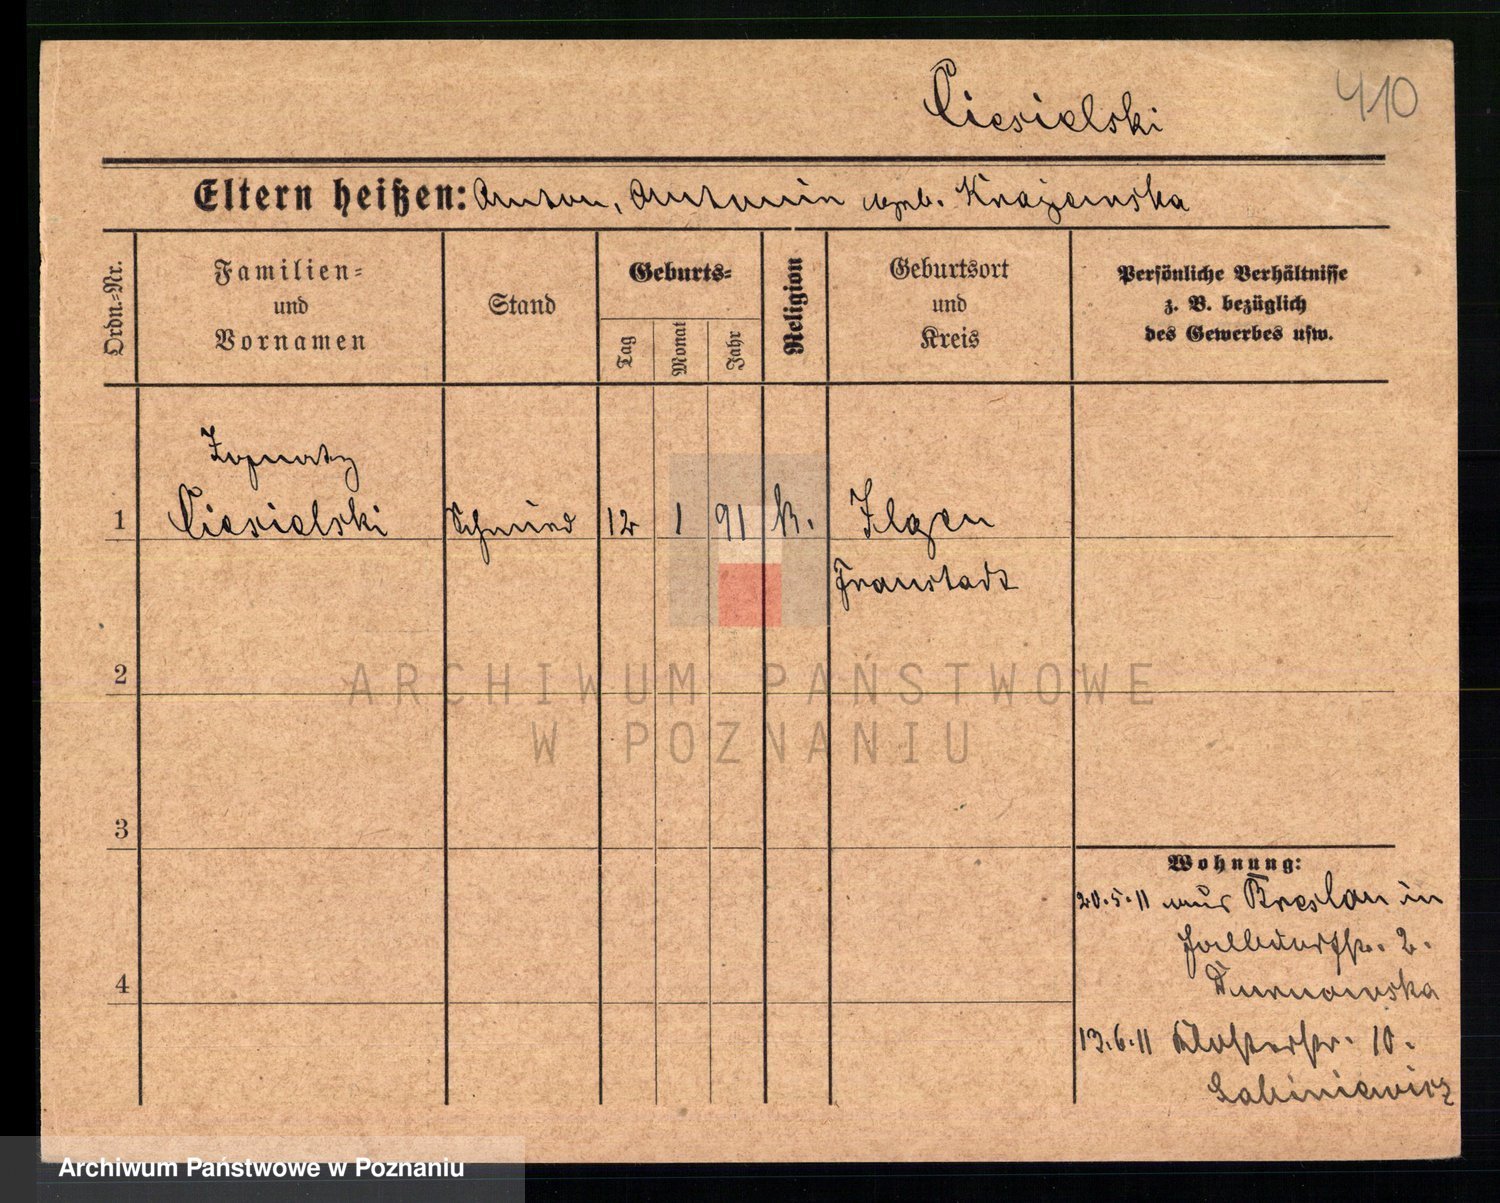 Ciesielski
410
Eltern heißen: Anton, Antonin geb. Krajewska
Ordn.-Nr.
Familien-
und
Vornamen
Stand
Geburts-
Tag
Monat
Jahr
Religion
Geburtsort
und
Kreis
Persönliche Verhältnisse
z. B. bezüglich
des Gewerbes usw.
Ignatz
1 Ciesielski Schmied 12 1 91 k. Ilgen
Fraustadt
2
ARCHIWUM PAŃSTWOWE
W POZNANIU
3
Wohnung:
20.5.11 aus Breslau in
2.
4
13.6.11 Klosterstr. 10.
Archiwum Państwowe w Poznaniu